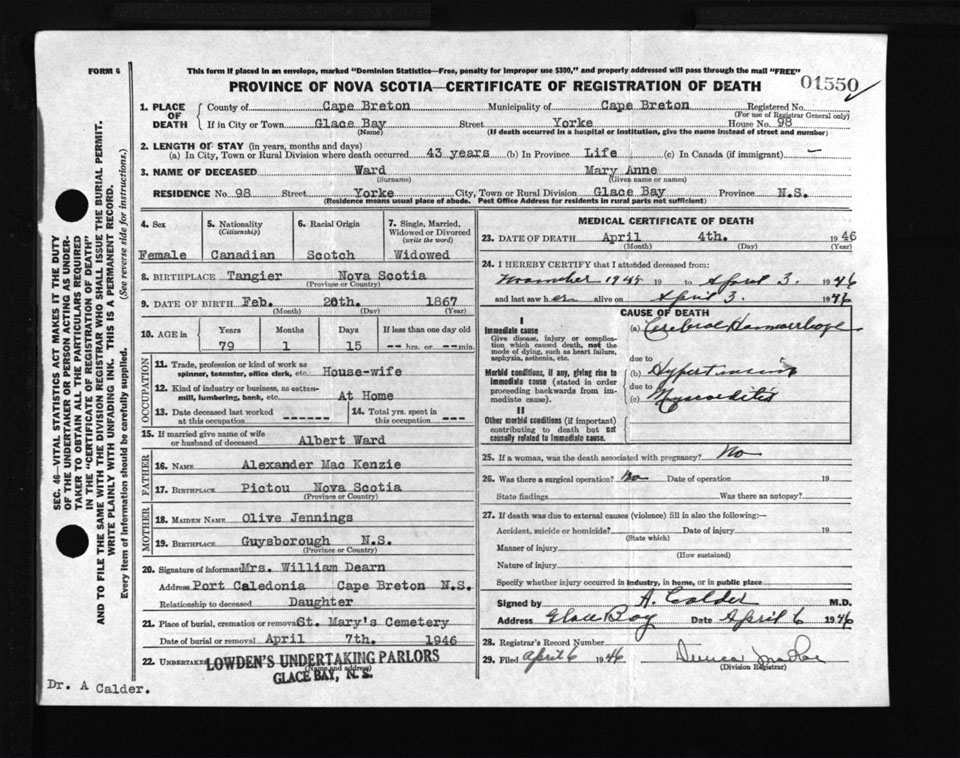 FORM 6
This form if placed in an envelope, marked "Dominion Statistics—Free, penalty for improper use $300," and properly addressed will pass through the mail "FREE"
01550
PROVINCE OF NOVA SCOTIA—CERTIFICATE OF REGISTRATION OF DEATH
1. PLACE OF DEATH
County of Cape Breton Municipality of Cape Breton Registered No.
(For use of Registrar General only)
If in City or Town Glace Bay Street Yorke House No. 98
(Name) (If death occurred in a hospital or institution, give the name instead of street and number)
2. LENGTH OF STAY (in years, months and days)
(a) In City, Town or Rural Division where death occurred 43 years (b) In Province Life (c) In Canada (if immigrant) —
3. NAME OF DECEASED Ward Mary Anne
(Surname) (Given name or names)
RESIDENCE No. 98 Street Yorke City, Town or Rural Division Glace Bay Province N.S.
(Residence means usual place of abode. Post Office Address for residents in rural parts not sufficient)
4. Sex
Female
5. Nationality
(Citizenship)
Canadian
6. Racial Origin
Scotch
7. Single, Married, Widowed or Divorced
(write the word)
Widowed
8. BIRTHPLACE Tangier Nova Scotia
(Province or Country)
9. DATE OF BIRTH Feb. 20th. 1867
(Month) (Day) (Year)
10. AGE in
Years Months Days If less than one day old
79 1 15 -- hrs. or -- min.
OCCUPATION
11. Trade, profession or kind of work as
spinner, teamster, office clerk, etc. House-wife
12. Kind of industry or business, as cotton-
mill, lumbering, bank, etc. At Home
13. Date deceased last worked
at this occupation ------
14. Total yrs. spent in
this occupation ---
15. If married give name of wife
or husband of deceased Albert Ward
FATHER
16. NAME Alexander Mac Kenzie
17. BIRTHPLACE Pictou Nova Scotia
(Province or Country)
MOTHER
18. MAIDEN NAME Olive Jennings
19. BIRTHPLACE Guysborough N.S.
(Province or Country)
20. Signature of informant Mrs. William Dearn
Address Port Caledonia Cape Breton N.S.
Relationship to deceased Daughter
21. Place of burial, cremation or removal St. Mary's Cemetery
Date of burial or removal April 7th. 1946
22. UNDERTAKER LOWDEN'S UNDERTAKING PARLORS
(Name and address)
GLACE BAY, N. S.
Dr. A Calder.
MEDICAL CERTIFICATE OF DEATH
23. DATE OF DEATH April 4th. 1946
(Month) (Day) (Year)
24. I HEREBY CERTIFY that I attended deceased from:
November 1945 19 to April 3. 1946
and last saw her alive on April 3. 1946
CAUSE OF DEATH
I
Immediate cause
Give disease, injury or complica-
tion which caused death, not the
mode of dying, such as heart failure,
asphyxia, asthenia, etc.
(a) Cerebral Haemorrhage
due to
Morbid conditions, if any, giving rise to
immediate cause (stated in order
proceeding backwards from im-
mediate cause).
(b) Hypertension
due to
(c) Myocarditis
II
Other morbid conditions (if important)
contributing to death but not
causally related to immediate cause.
25. If a woman, was the death associated with pregnancy? No
26. Was there a surgical operation? No Date of operation 19
State findings Was there an autopsy?
27. If death was due to external causes (violence) fill in also the following:—
Accident, suicide or homicide? Date of injury 19
(State which)
Manner of injury
(How sustained)
Nature of injury
Specify whether injury occurred in industry, in home, or in public place
Signed by A. Calder M.D.
Address Glace Bay Date April 6 1946
28. Registrar's Record Number
29. Filed April 6 1946
(Division Registrar)
SEC. 46—VITAL STATISTICS ACT MAKES IT THE DUTY
OF THE UNDERTAKER OR PERSON ACTING AS UNDER-
TAKER TO OBTAIN ALL THE PARTICULARS REQUIRED
IN THE "CERTIFICATE OF REGISTRATION OF DEATH"
AND TO FILE THE SAME WITH THE DIVISION REGISTRAR WHO SHALL ISSUE THE BURIAL PERMIT.
WRITE PLAINLY WITH UNFADING INK. THIS IS A PERMANENT RECORD.
Every item of information should be carefully supplied. (See reverse side for instructions.)